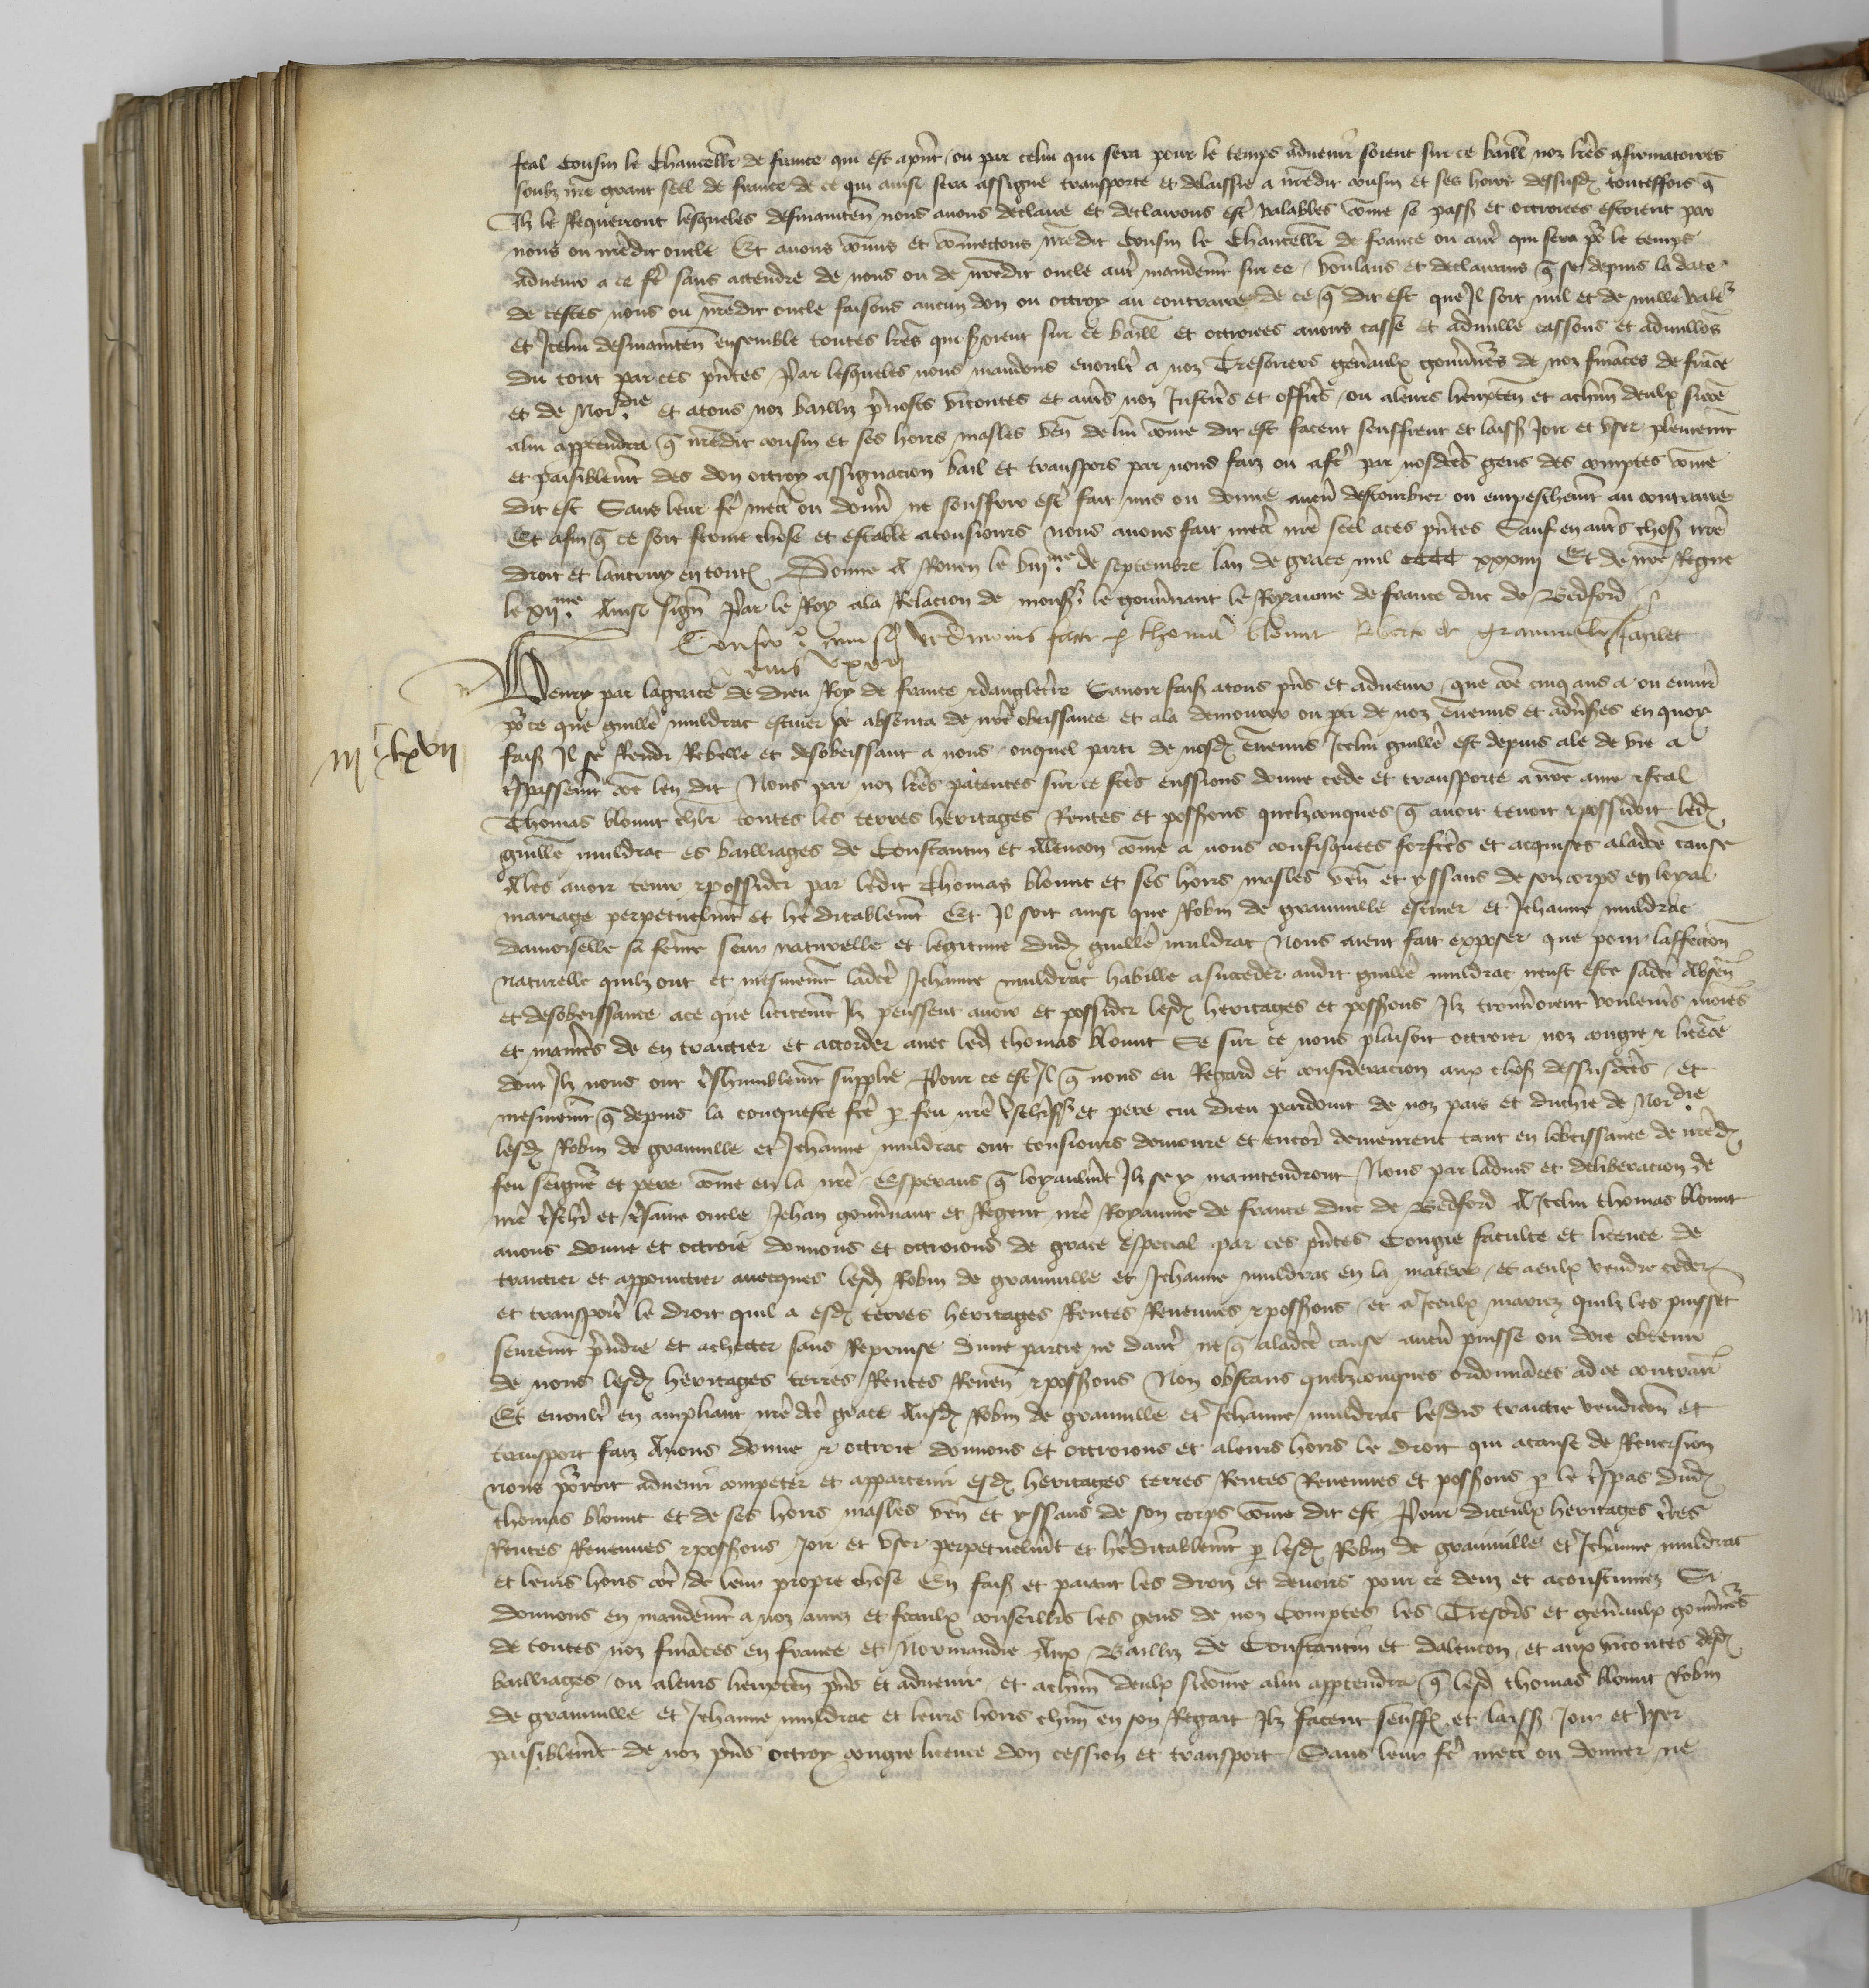 feal cousin le Chancellr de france qui est apnt ou par celui qui sera pour le temps aduenir soient sur ce baill noz lres confirmatoires
soubz nre grant seel de france de ce qui ainsi sera assigne transporte et delaissie a nredit cousin et ses hoirs dessusd toutesfois q
Ilz le Requerront lesqueles desmainten nous auons declaire et declairons est valables come se pass et octroiees estoient par
nous ou nredit oncle Et auons comis et comectons nredit Cousin le Chancellr de france ou autr qui sera pr le temps
aduenir a ce fe sans attendre de nous ou de nredit oncle autr mandemt sur ce voulans et declairans q se depuis la date
de cestes nous ou nredit oncle faisons aucun don ou octroy au contraire de ce q dit est que Il soit nul et de nulle vale
et Icelui desmainten ensemble toutes lres qui seroient sur ce baill et octroiees auons casse et adnulle cassons et adnullos
du tout par ces pntes Par lesqueles nous mandons enoultr a noz Tresoriers genaulx gouunrs de noz finaces de frace
et de Nordie et atous noz bailliz preuosts vicontes et autrs noz Justicrs et officrs ou aleurs lieuxten et achun deulx sicoe
alui apptendra q nredit cousin et ses hoirs masles ven de lui come dit est facent seuffrent et laiss Joir et vser plenemt
et paisiblemt des don octroy assignacion bail et transpors par nous faiz ou afe par nosdctes gens des comptes come
dit est Sans leur fe mectr ou donn ne souffrir estr fait mis ou donne aucun destourbier ou empeschemt au contraire
Et afin q ce soit ferme chose et estable atousiours nous auons fait mectr nre seel aces pntes Sauf en autrs choses nre
droit et lautruy en toutes Donne A Rouen le viiime de septembre lan de grace mil cccc xxxiiii Et de nre Regne
le xiime Ainsi sign Par le Roy ala Relacion de monsr le gouunant le Royaume de france duc de Bedford
thoma blount Roberto de granuille
Henry par lagrace de dieu Roy de france & dangletrre Sauoir faiss atous pns et aduenir que coe cinq ans a ou enuir
pr ce que guille muldrac escuier se absenta de nre obeissance et ala demourer ou pti de noz ennemis et aduses en quoy
iiic lxvii
faiss Il se Rendi Rebelle et desobeissant a nous ouquel parti de nosd ennemis Icelui guille est depuis ale de vie a
trespassemt coe len dit Nous par noz lres patentes sur ce fctes eussions donne cede et transporte a nre ame & feal
Thomas blount chlr toutes les terres heritages Rentes et possessions quelzconques q auoit tenoit & possidoit led
guille muldrac es bailliages de Constantin et Alencon come a nous confisquees forfctes et acquises aladcte cause
A les auoir tenir & possider par ledit Thomas blount et ses hoirs masles ven et yssans de son corps en loyal
mariage perpetuelmt et heditablemt Et Il soit ainsi que Robin de granuille escuier et Jehanne muldrac
damoiselle sa feme seur naturelle et legitime dud guille muldrac Nous aient fait exposer que pour laffection
naturelle quilz ont et mesmemt ladcte Jehanne muldrac habille asucceder audit guille muldrac neust este sadcte absen
et desobeissance ace que licitemt Ilz peussent auoir et possider lesd heritages et possessions Ilz trouueroient voulentrs moies
et manrs de en traictier et accorder auec led thomas blount Se sur ce nous plaisoit octroier noz congie & licece
dont Ilz nous ont treshumblemt supplie Pour ce est Il q nous eu Regard et consideracion aux choses dessusdctes et
mesmemt q depuis la conqueste fcte p feu nre seigr et pere cui dieu pardoint de noz pais et duchie de Nordie
lesd Robin de granuille et Jehanne muldrac ont tousiours demoure et encor demeurent tant en lobeissance de nred
feu seignr et pere come en la nre Esperans q loyaulmt Ilz se y maintendront Nous par laduis et deliberacion de
nre treschr et tresame oncle Jehan gouunant et Regent nre Royaume de france duc de Bedford A Icelui thomas blount
auons donne et octroie donnons et octroions de grace especial par ces pntes Congie faculte et licence de
traictier et appoinctier auecques lesd Robin de granuille et Jehanne muldrac en la matere et aeulx vendre ceder
et transportr le droit quil a esd terres heritages Rentes Reuenues & possessions et a Iceulx mariez quilz les puisset
seuremt prendre et achetter sans Reprinse dune partie ne dautr ne q aladcte cause aucun puisse ou doie obtenir
de nous lesd heritages terres Rentes Reuen & possessions Non obstans quelzconques ordonnaces adce contrar
Et enoultr en ampliant nre dcte grace Ausd Robin de granuille et Jehanne muldrac lesdis traictie vendicon et
transport faiz Auons donne & octroie donnons et octroions et aleurs hoirs le droit qui acause de Reuersion
nous prroit aduenir competer et appartenir esd heritages terres Rentes Reuenues et possessions p le trespas dud
thomas blount et de ses hoirs masles ven et yssans de son corps come dit est Pour diceulx heritages trres
Rentes Reuenues & possessions Joir et vser perpetuelmt et heditablemt p lesd Robin de granuille et Jehanne muldrac
et leurs hoirs coe de leur propre chose En faiss et paiant les drois et deuoirs pour ce deuz et acoustumez Si
donnons en mandemt a noz amez et feaulx conseillrs les gens de noz Comptes les Tresorrs et genaulx gouunrs
de toutes noz finaces en france et Normandie Aux Bailliz de Constantin et dalencon et aux vicontes desd
bailliages ou aleurs lieuxten pns et aduenir et achun deulx sicome alui apptendra q lesd thomas blount Robin
de granuille et Jehanne muldrac et leurs hoirs chun en son Regart Ilz facent seuffr et laiss Joir et vser
paisiblemt de noz pns octroy congie licence don cession et transport Sans leur fe mectr ou donner ne